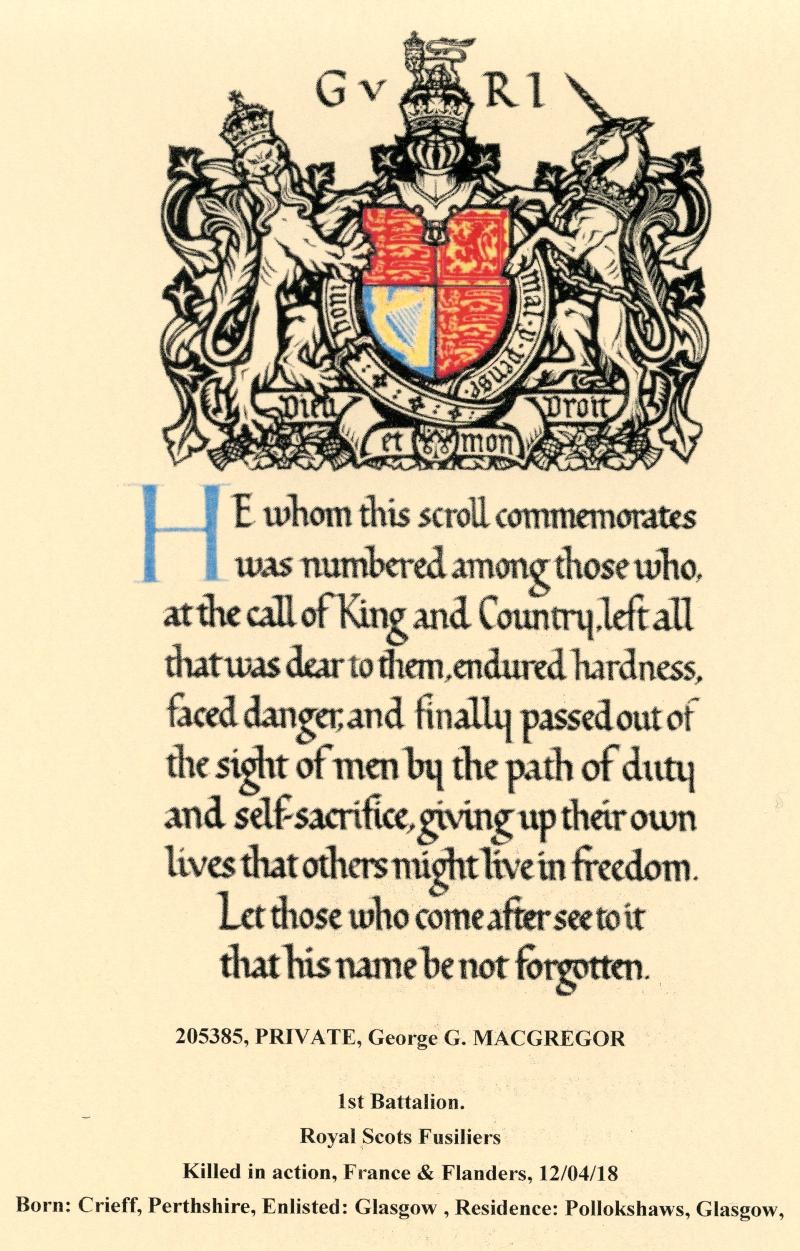 G V R I
honi
mal·y·pense
Dieu
Droit
et mon
HE whom this scroll commemorates
was numbered among those who,
at the call of King and Country, left all
that was dear to them, endured hardness,
faced danger, and finally passed out of
the sight of men by the path of duty
and self-sacrifice, giving up their own
lives that others might live in freedom.
Let those who come after see to it
that his name be not forgotten.
205385, PRIVATE, George G. MACGREGOR
1st Battalion.
Royal Scots Fusiliers
Killed in action, France & Flanders, 12/04/18
Born: Crieff, Perthshire, Enlisted: Glasgow , Residence: Pollokshaws, Glasgow,